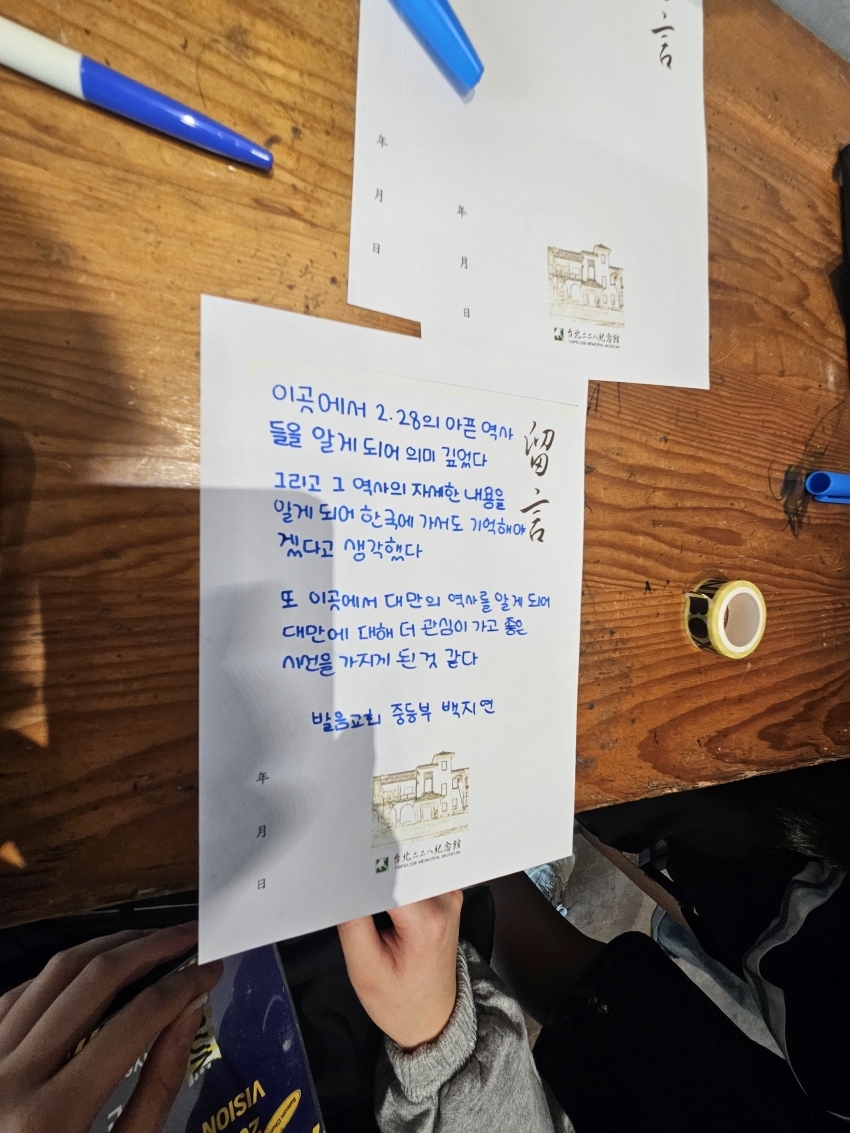 言
年
月
日
年
月
日
台北二二八紀念館
TAIPEI 228 MEMORIAL MUSEUM
留言
이곳에서 2.28의 아픈 역사
들을 알게 되어 의미 깊었다
그리고 그 역사의 자세한 내용을
알게 되어 한국에 가서도 기억해야
겠다고 생각했다
또 이곳에서 대만의 역사를 알게 되어
대만에 대해 더 관심이 가고 좋은
시선을 가지게 된 것 같다
발음교회 중등부 백지연
年
月
日
台北二二八紀念館
TAIPEI 228 MEMORIAL MUSEUM
VISION